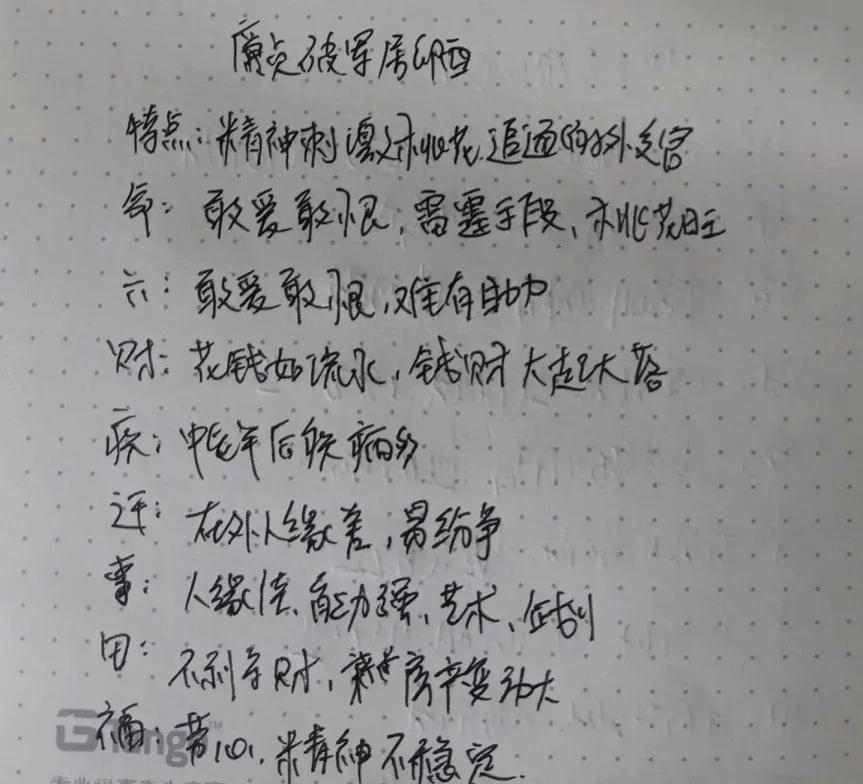 廉贞破军居卯酉
特点:精神刺激对桃花,追逐的外交官
命:敢爱敢恨,雷霆手段、桃花旺
六:敢爱敢恨,难有助力
财:花钱如流水,钱财大起大落
疾:中年后疾病多
迁:在外人缘差,易纷争
事:人缘佳、能力强、艺术、企划
田:不利守财,房产变动大
福:劳心、精神不稳定.